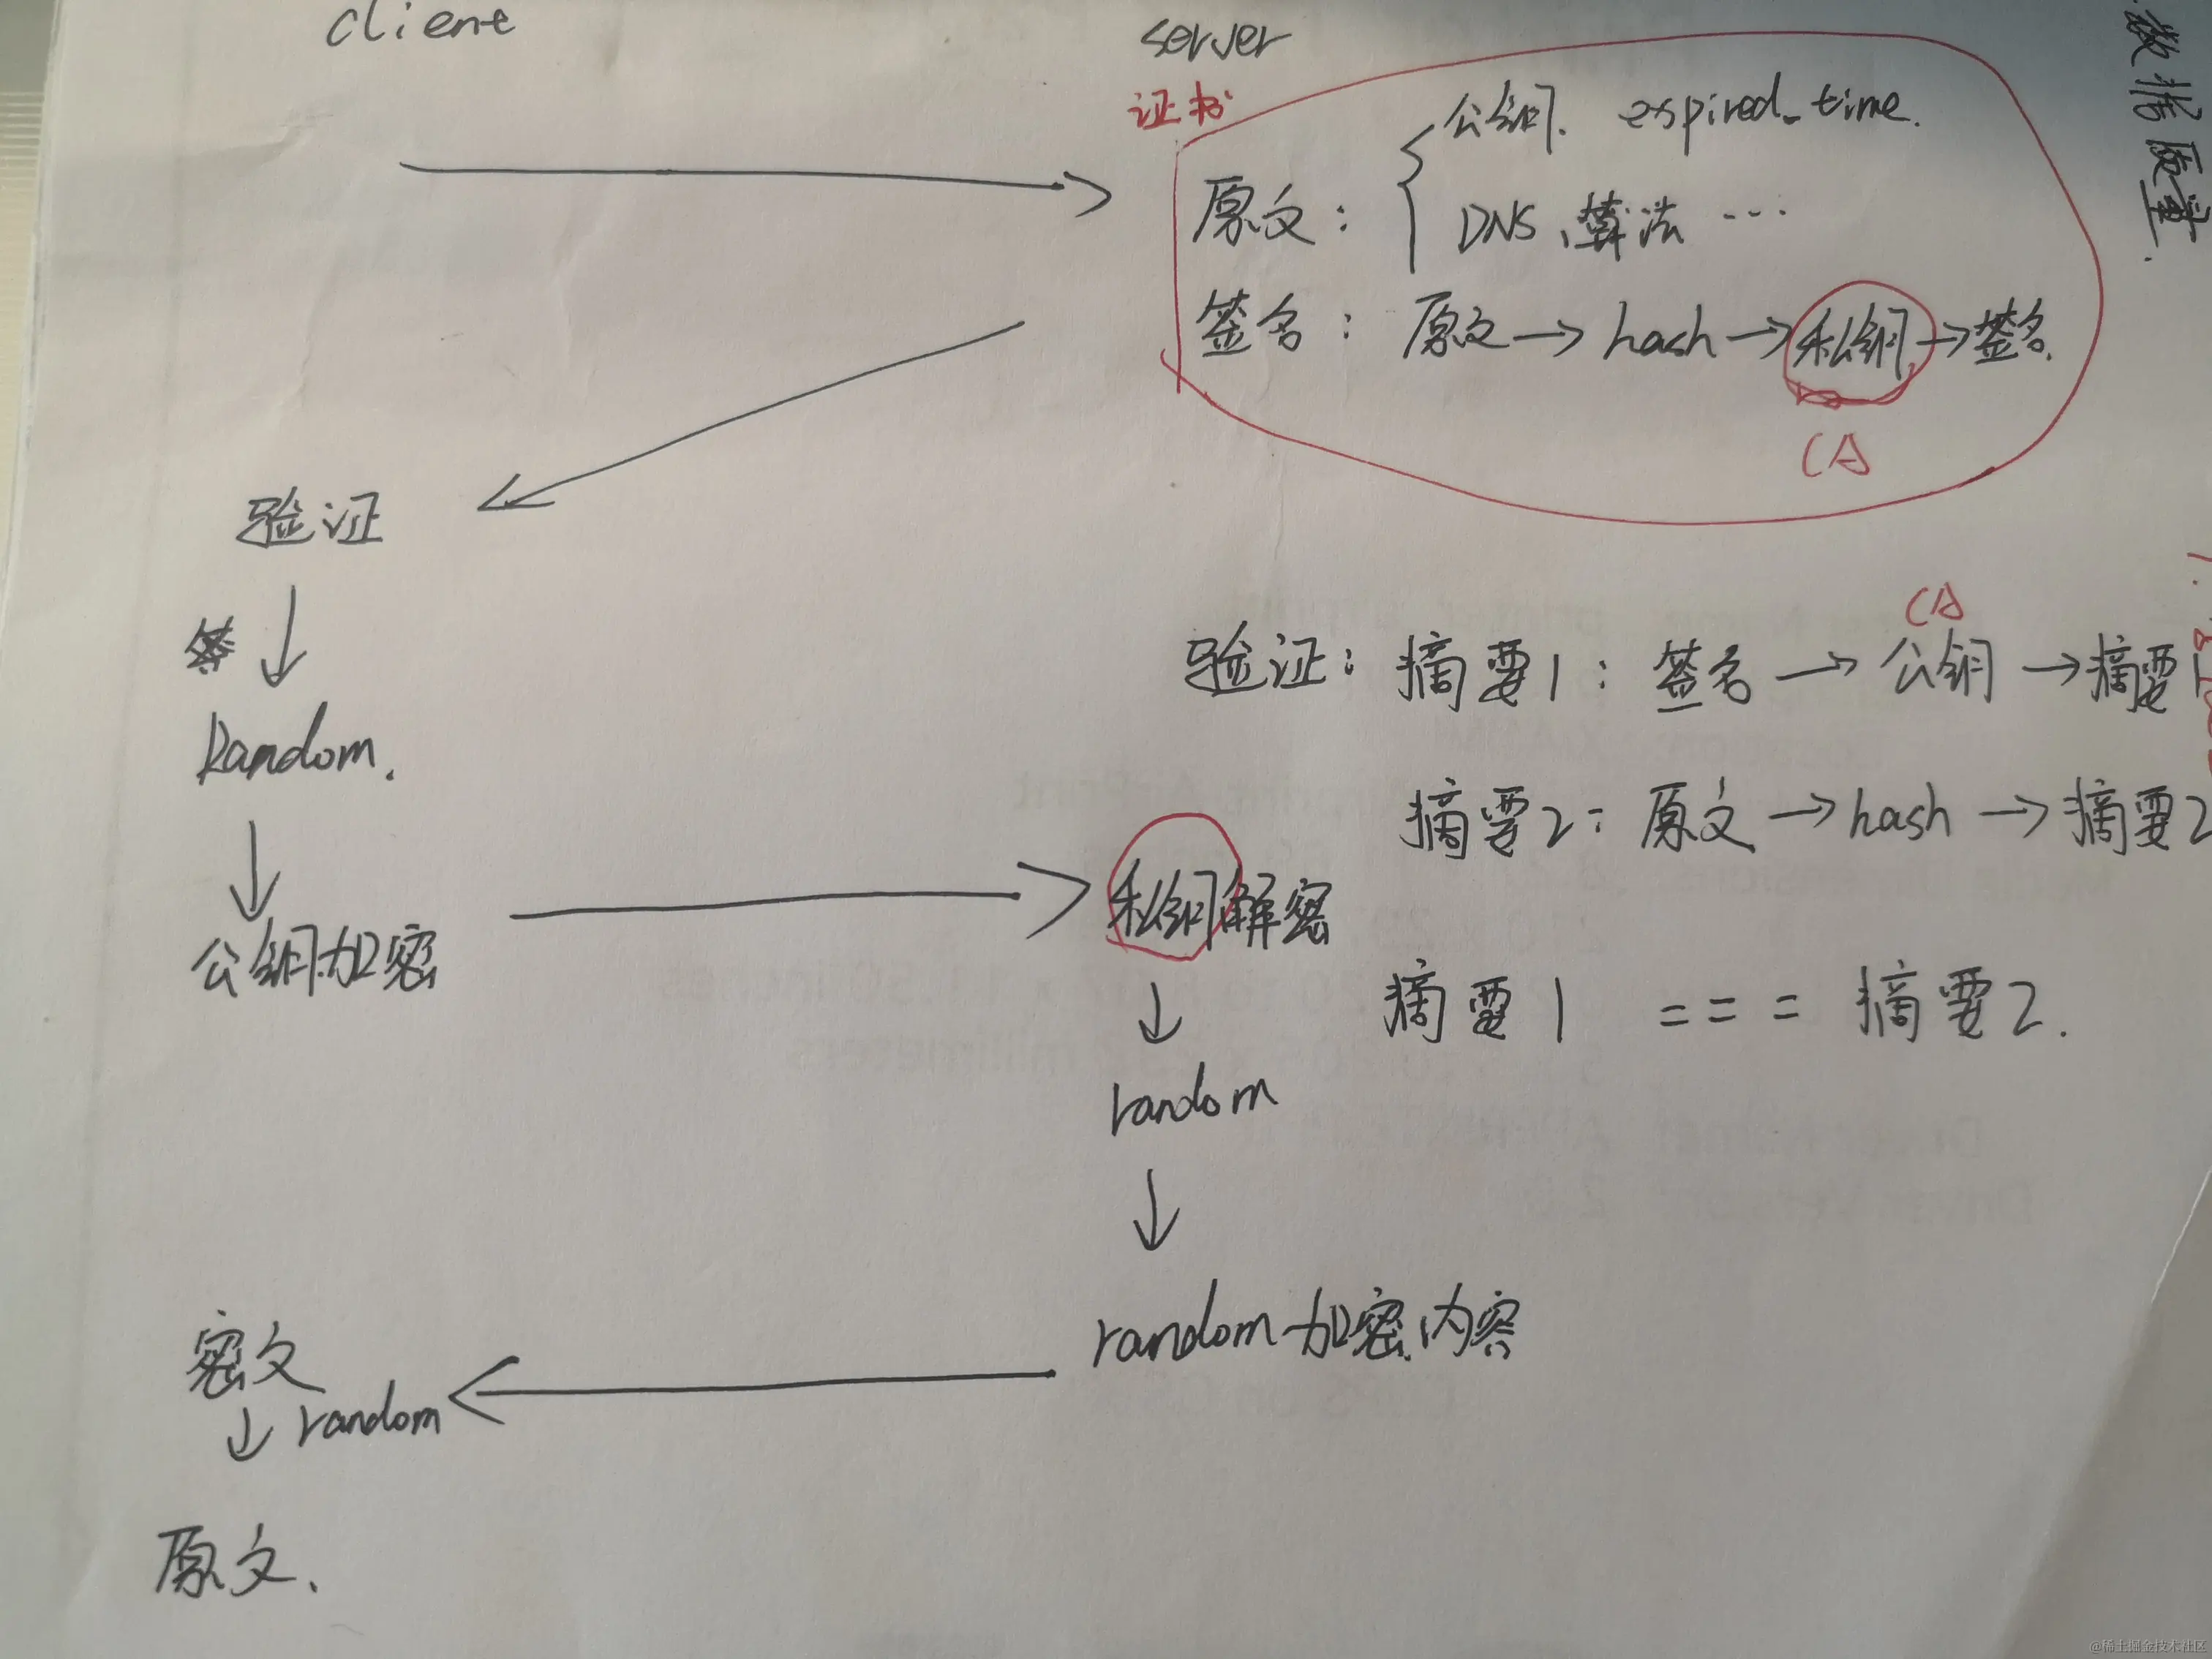 client
server
证书
公钥、expired_time.
原文：
DNS、算法 …
签名：原文→hash→私钥→签名.
CA
验证
Random.
公钥加密
CA
验证：摘要1：签名→公钥→摘要1
摘要2：原文→hash→摘要2
私钥解密
摘要1 === 摘要2.
random
random加密内容
密文
random
原文.
数据质量.
@稀土掘金技术社区